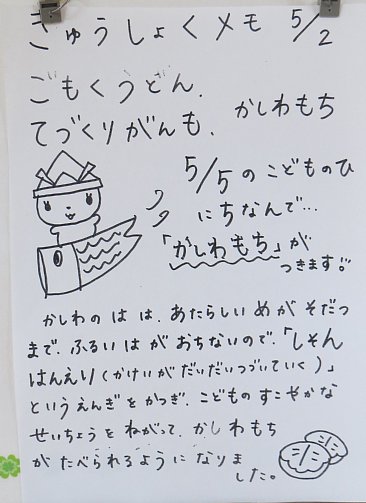 きゅうしょくメモ 5/2
ごもくうどん.
てづくりがんも. かしわもち
5/5のこどものひ
にちなんで…
「かしわもち」が
つきます!!
かしわのはは、あたらしいめがそだつ
まで、ふるいはがおちないので、「しそん
はんえい(かけいがだいだいつづいていく)」
というえんぎをかつぎ、こどものすこやかな
せいちょうをねがって、かしわもち
がたべられるようになりま
した。